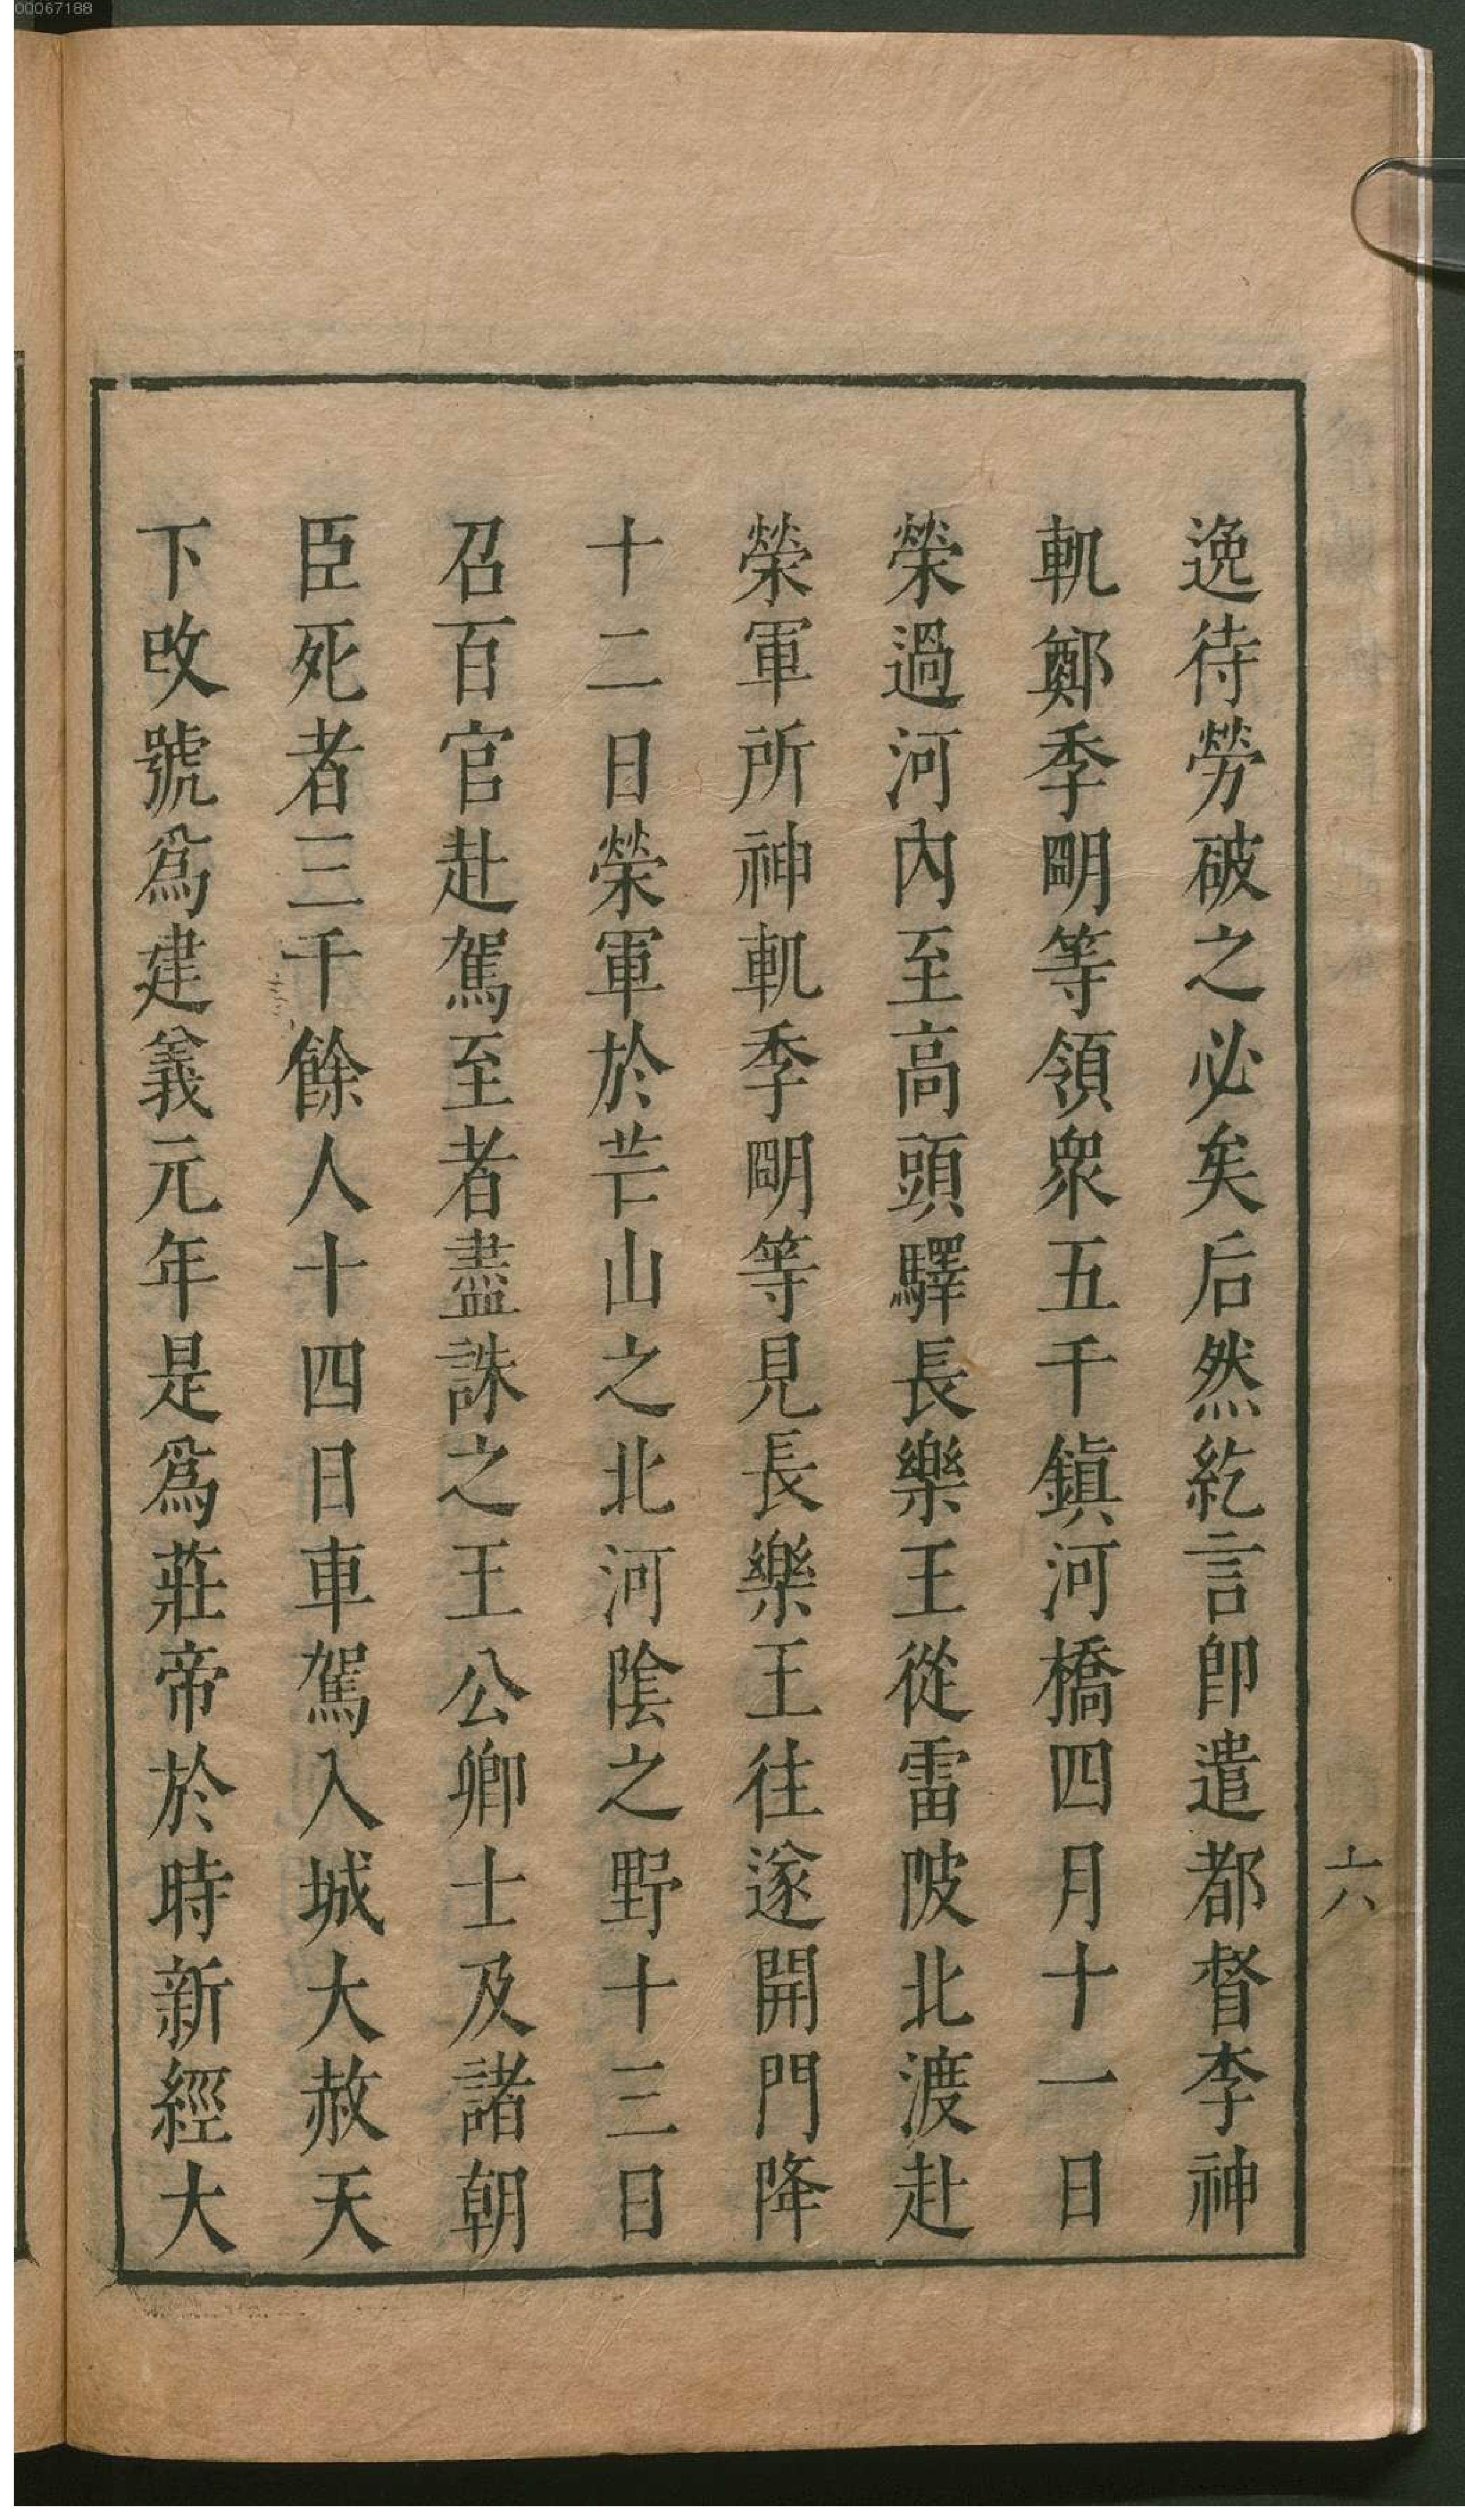 逸待勞破之必矣后然紇言卽遣都督李神
軌鄭季明等領衆五千鎮河橋四月十一日
榮過河內至高頭驛長樂王從雷陂北渡赴
榮軍所神軌季明等見長樂王往遂開門降
十二日榮軍於芒山之北河陰之野十三日
召百官赴駕至者盡誅之王公卿士及諸朝
臣死者三千餘人十四日車駕入城大赦天
下改號爲建義元年是爲莊帝於時新經大
六
00067188